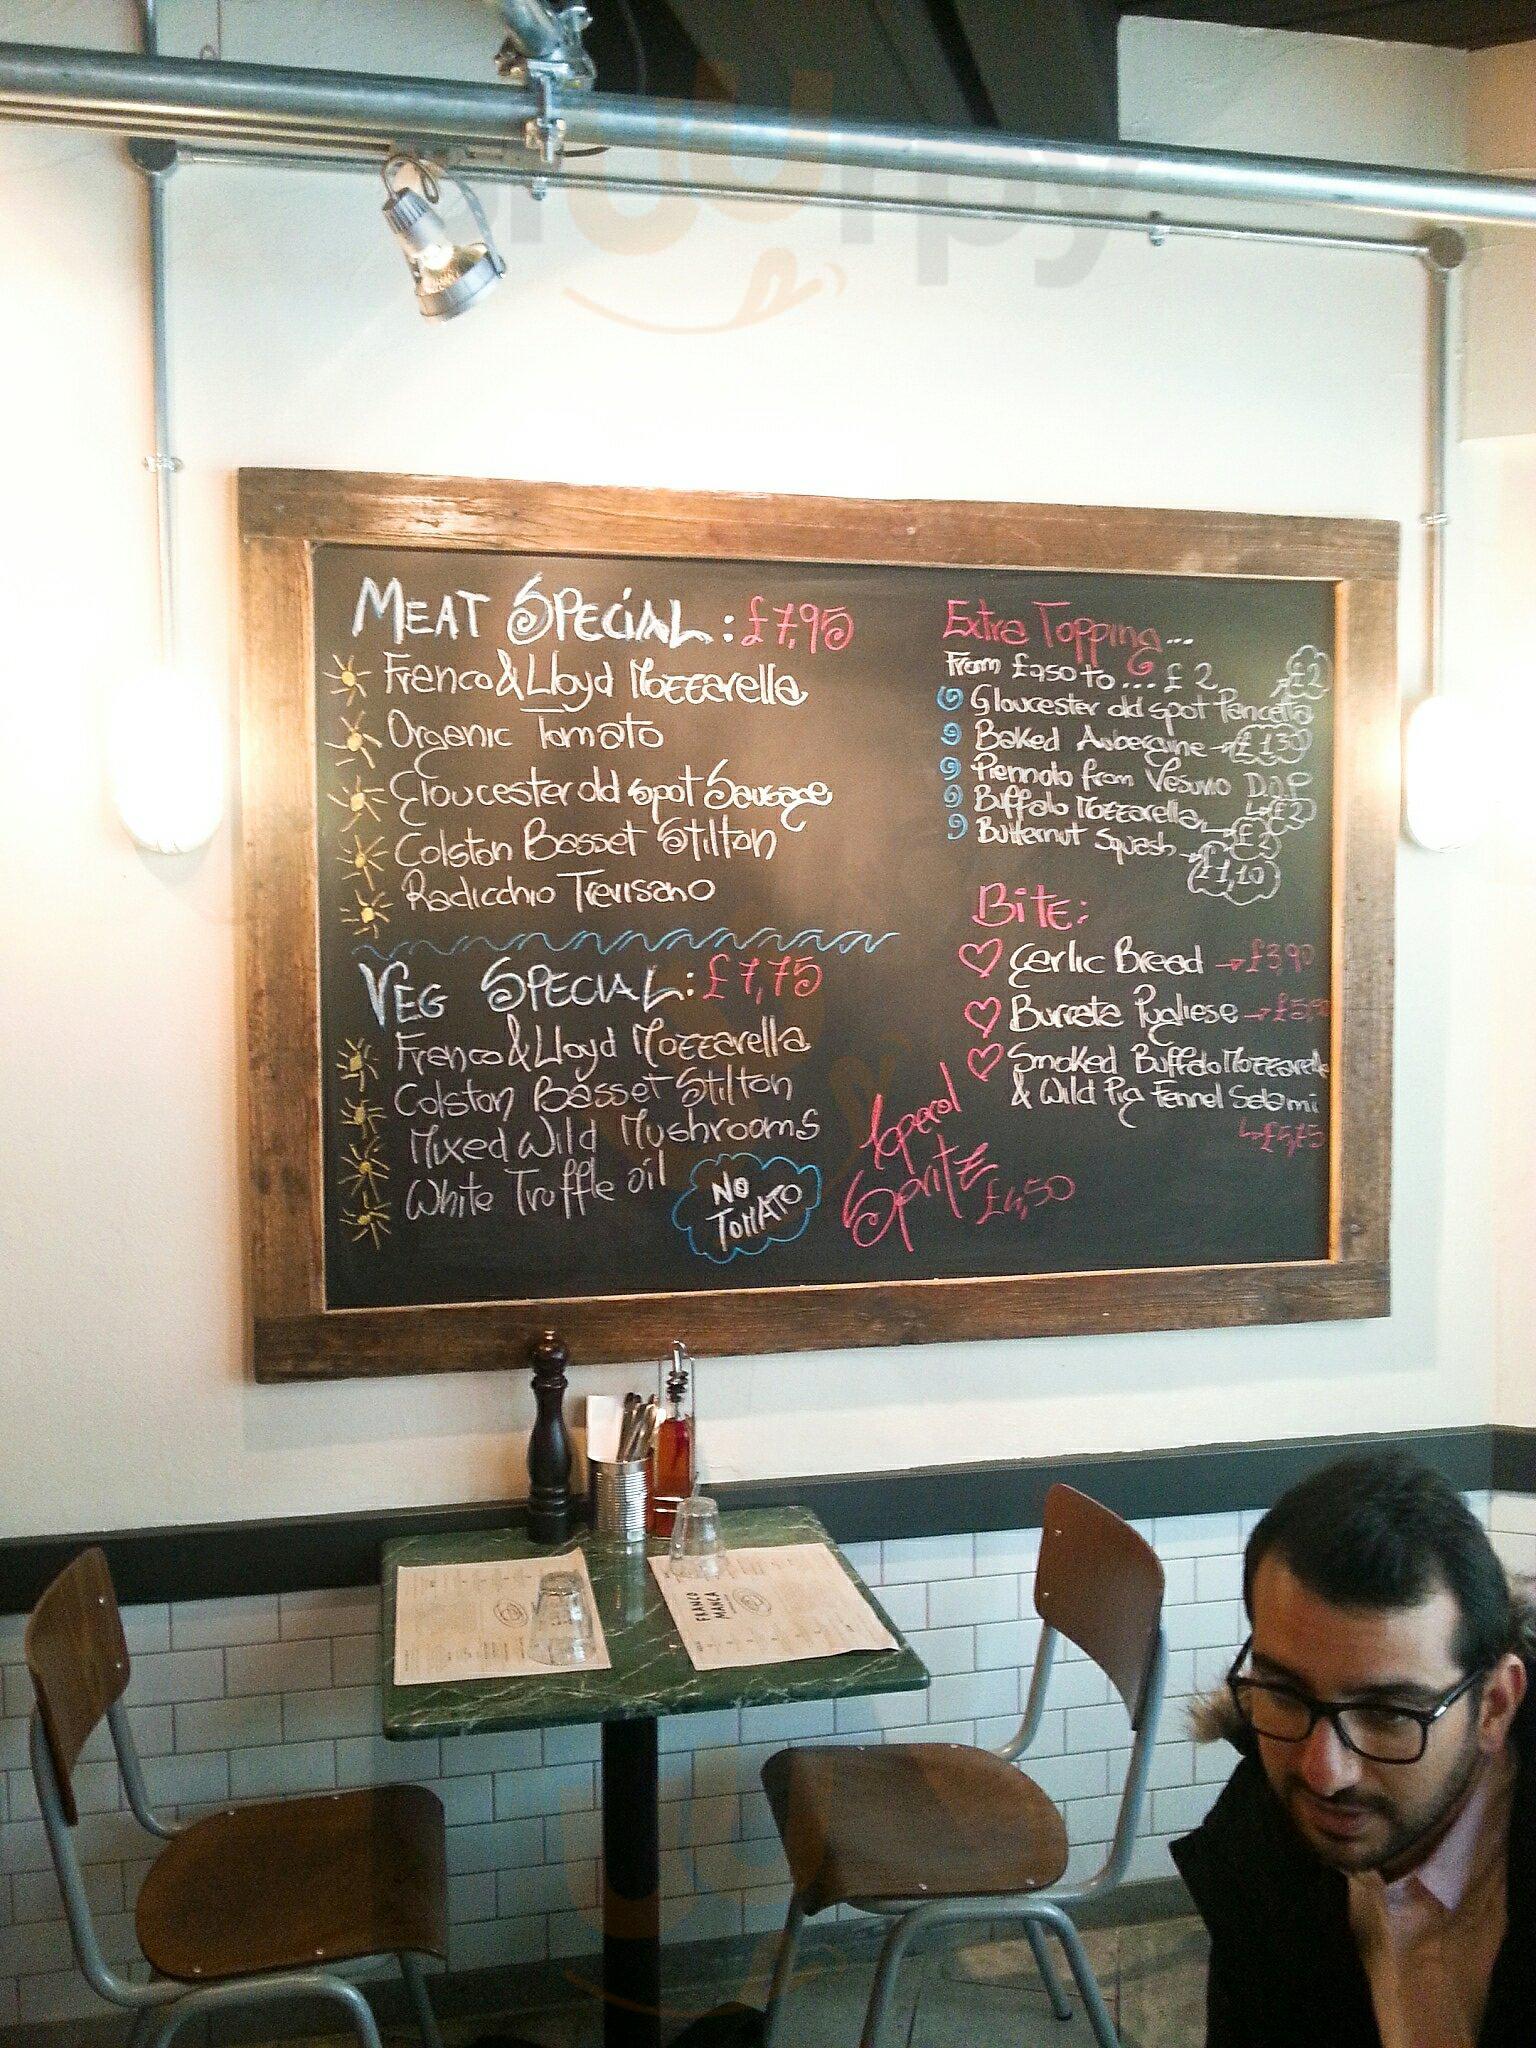 MEAT SPECIAL: £7,95
Franco & Lloyd Mozzarella
Organic Tomato
Gloucester old spot Sausage
Colston Basset Stilton
Radicchio Trevisano
VEG SPECIAL: £7,75
Franco & Lloyd Mozzarella
Colston Basset Stilton
Mixed Wild Mushrooms
White Truffle oil
NO
TOMATO
Extra Topping...
From £0,50 to... £2
£2
Gloucester old spot Pancetta
Baked Aubergine £1,30
Piennolo from Vesuvio D.O.P
£2
Buffalo Mozzarella £2
Butternut Squash
£1,10
BITE:
Garlic Bread £3,90
Burrata Pugliese
Smoked Buffalo Mozzarella
& Wild Pig Fennel Salami
£5,75
Aperol
Spritz
£4,50
FRANCO
MANCA